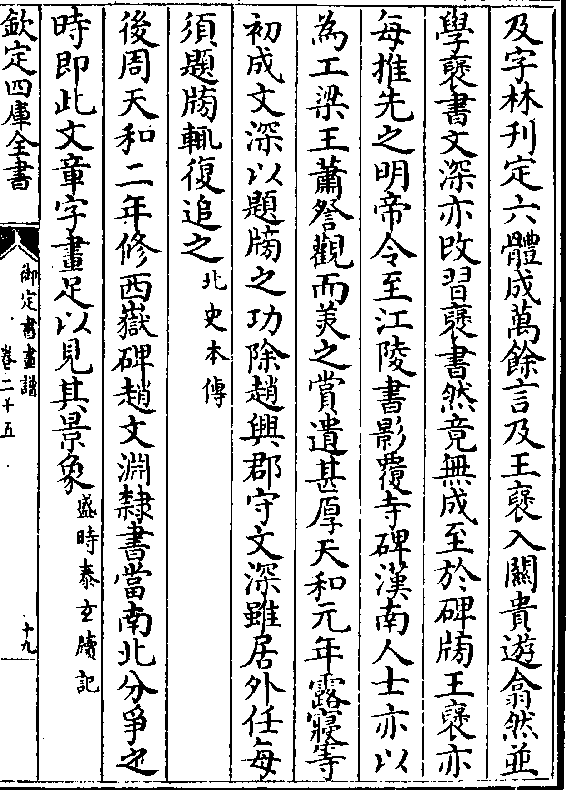 及字林刋定六體成萬餘言及王襃入關貴遊翕然並
學襃書文深亦改習襃書然竟無成至於碑牓王襃亦
每推先之明帝令至江陵書影覆寺碑漢南人士亦以
為工梁王蕭詧觀而美之賞遺甚厚天和元年露寢等
初成文深以題牓之功除趙興郡守文深雖居外任每
須題牓輒復追之北史本傳
後周天和二年修西嶽碑趙文淵隸書當南北分爭之
時即此文章字畫足以見其景象盛時泰玄牘記
欽定四庫全書
御定書畫譜
卷二十五
十九